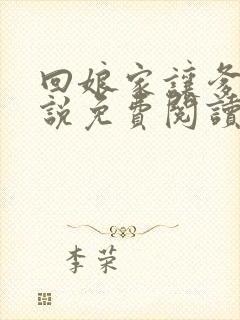 回娘家讓爹
說免費閱讀
李荣